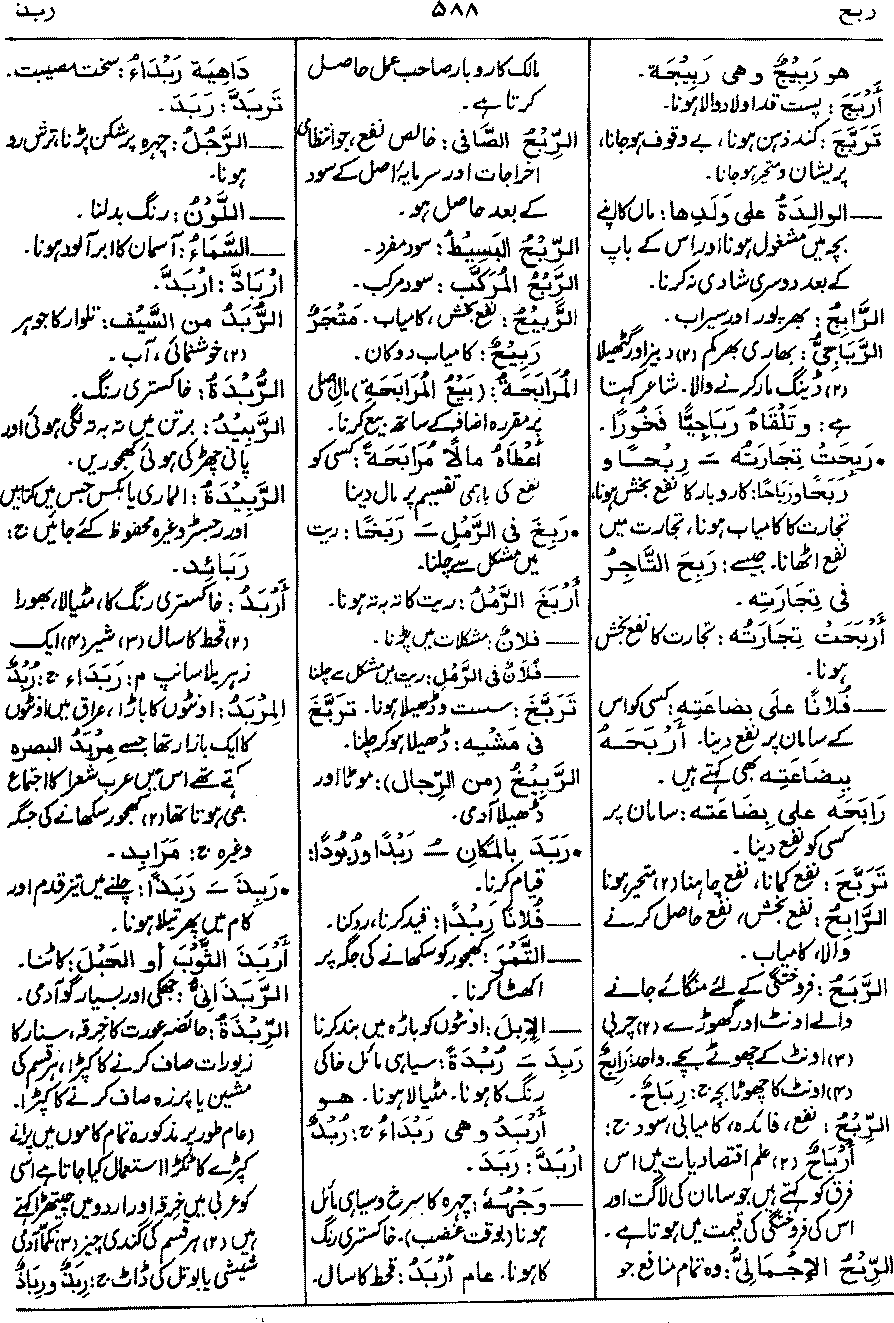 ربح
۵۸۸
ربذ
هو رَبِيحٌ وهی رَبِيحَة۔
أَرْبَحَ: پست قد اولاد والا ہونا۔
تَرَبَّحَ: کند ذہن ہونا، بے وقوف ہو جانا،
پریشان و متحیر ہو جانا۔
— الوالِدَةُ علی وَلَدِها: ماں کا اپنے
بچہ میں مشغول ہونا اور اس کے باپ
کے بعد دوسری شادی نہ کرنا۔
الرَّابِحُ: بھرپور اور سیراب۔
الرَّبَاجِيُّ: بھاری بھرکم (۲) دبیز اور گٹھیلا
(۳) ڈینگ مار کرنے والا۔ شاعر کہتا
ہے: وتَلْقَاهُ رَبَاجِيًّا فَخُورًا۔
• رَبِحَتْ تِجَارَتُه ـَ رِبْحًا و
رَبَحًا ورَبَاحًا: کاروبار کا نفع بخش ہونا،
تجارت کا کامیاب ہونا، تجارت میں
نفع اٹھانا۔ جیسے: رَبِحَ التَّاجِرُ
فی تِجَارَتِه۔
أَرْبَحَتْ تِجَارَتُه: تجارت کا نفع بخش
ہونا۔
— فُلانًا علی بِضاعَتِه: کسی کو اس
کے سامان پر نفع دینا۔ أَرْبَحَهُ
بِبِضَاعَتِه بھی کہتے ہیں۔
رَابَحَه علی بِضَاعَتِه: سامان پر
کسی کو نفع دینا۔
تَرَبَّحَ: نفع کمانا، نفع چاہنا (۲) متحیر ہونا
الرَّابِحُ: نفع بخش، نفع حاصل کرنے
والا، کامیاب۔
الرَّبَحُ: فروختگی کے لئے منگائے جانے
والے اونٹ اور گھوڑے (۲) چربی
(۳) اونٹ کے چھوٹے بچے۔ واحد: رَابِحٌ
(۴) اونٹ کا چھوٹا بچہ ج: رِبَاحٌ۔
الرِّبْحُ: نفع، فائدہ، کامیابی، سود ج:
أَرْبَاحٌ (۲) علم اقتصادیات میں اس
فرق کو کہتے ہیں جو سامان کی لاگت اور
اس کی فروختگی کی قیمت میں ہوتا ہے۔
الرِّبْحُ الإجْمَالِیُّ: وہ تمام منافع جو
مالک کاروبار صاحب عمل حاصل
کرتا ہے۔
الرِّبْحُ الصَّافی: خالص نفع، جو انتظامی
اخراجات اور سرمایۂ اصل کے سود
کے بعد حاصل ہو۔
الرِّبْحُ البَسِيطُ: سود مفرد۔
الرِّبْحُ المُرَكَّبُ: سود مرکب۔
الرَّبِيحُ: نفع بخش، کامیاب۔ مَتْجَرٌ
رَبِيحٌ: کامیاب دوکان۔
المُرَابَحَةُ: (بَيْعُ المُرَابَحَةِ) مال اصل
پر مقررہ اضافے کے ساتھ بیع کرنا۔
أَعْطَاهُ مالًا مُرَابَحَةً: کسی کو
نفع کی باہمی تقسیم پر مال دینا
• رَبِخَ فی الرَّمْلِ ـَ رَبَخًا: ریت
میں مشکل سے چلنا۔
أَرْبَخَ الرَّمْلُ: ریت کا تہ بتہ ہونا۔
— فلانٌ: مشکلات میں پڑنا۔
— فُلَانٌ فی الرَّمْلِ: ریت میں مشکل سے چلنا
تَرَبَّخَ: سست و ڈھیلا ہونا۔ تَرَبَّخَ
فی مَشْيِه: ڈھیلا ہو کر چلنا۔
الرَّبِيخُ (من الرِّجال): موٹا اور
ڈھیلا آدمی۔
• رَبَدَ بالمَكَانِ ـُ رَبْدًا ورُبُودًا:
قیام کرنا۔
— فُلانًا رَبْدًا: قید کرنا، روکنا۔
— التَّمْرَ: کھجور کو سکھانے کی جگہ پر
اکھٹا کرنا۔
— الإبِلَ: اونٹوں کو باڑہ میں بند کرنا
رَبِدَ ـَ رُبْدَةً: سیاہی مائل خاکی
رنگ کا ہونا۔ مٹیالا ہونا۔ هو
أَرْبَدُ وهی رَبْدَاءُ ج: رُبْدٌ
ارْبَدَّ: رَبِدَ۔
— وَجْهُهُ: چہرہ کا سرخ و سیاہی مائل
ہونا (بوقت غضب)۔ خاکستری رنگ
کا ہونا۔ عام أَرْبَدُ: قحط کا سال۔
دَاهِيَة رَبْدَاءُ: سخت مصیبت۔
تَرَبَّدَ: رَبِدَ۔
— الرَّجُلُ: چہرہ پر شکن پڑنا، ترش رو
ہونا۔
— اللَّوْنُ: رنگ بدلنا۔
— السَّمَاءُ: آسمان کا ابر آلود ہونا۔
ارْبَادَّ: ارْبَدَّ۔
الرُّبَدُ من السَّيْف: تلوار کا جوہر
(۲) خوشنمائی، آب۔
الرُّبْدَةُ: خاکستری رنگ۔
الرَّبِيدُ: برتن میں تہ بہ تہ لگی ہوئی اور
پانی چھڑکی ہوئی کھجوریں۔
الرَّبِيدَةُ: الماری یا بکس جس میں کتابیں
اور رجسٹر وغیرہ محفوظ کئے جائیں ج:
رَبَائِد۔
أَرْبَدُ: خاکستری رنگ کا، مٹیالا، بھورا
(۲) قحط کا سال (۳) شیر (۴) ایک
زہریلا سانپ م: رَبْدَاء ج: رُبْدٌ
المِرْبَدُ: اونٹوں کا باڑا، عراق میں اونٹوں
کا ایک بازار تھا جسے مِرْبَدُ البصرہ
کہتے تھے اس میں عرب شعرا کا اجتماع
بھی ہوتا تھا (۲) کھجور سکھانے کی جگہ
وغیرہ ج: مَرَابِد۔
• رَبِذَ ـَ رَبَذًا: چلنے میں تیز قدم اور
کام میں پھرتیلا ہونا۔
أَرْبَذَ الثَّوْبَ أو الحَبْلَ: کاٹنا۔
الرَّبَذَانِیُّ: جھکی اور بسیار گو آدمی۔
الرِّبْذَةُ: حائضہ عورت کا خرقہ، سنار کا
زیورات صاف کرنے کا کپڑا، ہر قسم کی
مشین یا پرزہ صاف کرنے کا کپڑا۔
(عام طور پر مذکورہ تمام کاموں میں پرانے
کپڑے کا ٹکڑا استعمال کیا جاتا ہے اسی
کو عربی میں خرقہ اور اردو میں چیتھڑا کہتے
ہیں (۲) ہر قسم کی گندی چیز (۳) نکما آدمی
شیشی یا بوتل کی ڈاٹ ج: رِبَذٌ و رِبَاذٌ